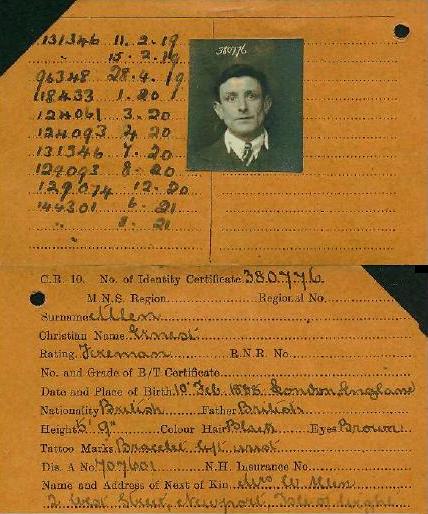 131346 11. 2. 19
" 15. 2. 19
96348 28. 4. 19
118433 1. 20
124061 3. 20
124093 4. 20
131346 7. 20
129093 8. 20
129074 12. 20
144301 6. 21
" 8. 21
"
380776
C.R. 10. No. of Identity Certificate 380776
M N.S. Region Regional No.
Surname Allen
Christian Name Ernest
Rating Fireman R.N.R. No.
No. and Grade of B/T Certificate
Date and Place of Birth 10 Feb 1888 London England
Nationality British Father British
Height 5' 9" Colour Hair Black Eyes Brown
Tattoo Marks Bracelet left wrist
Dis. A No. 707601 N.H. Insurance No.
Name and Address of Next of Kin Mrs W Allen
2 West Street, Newport, Isle of Wight